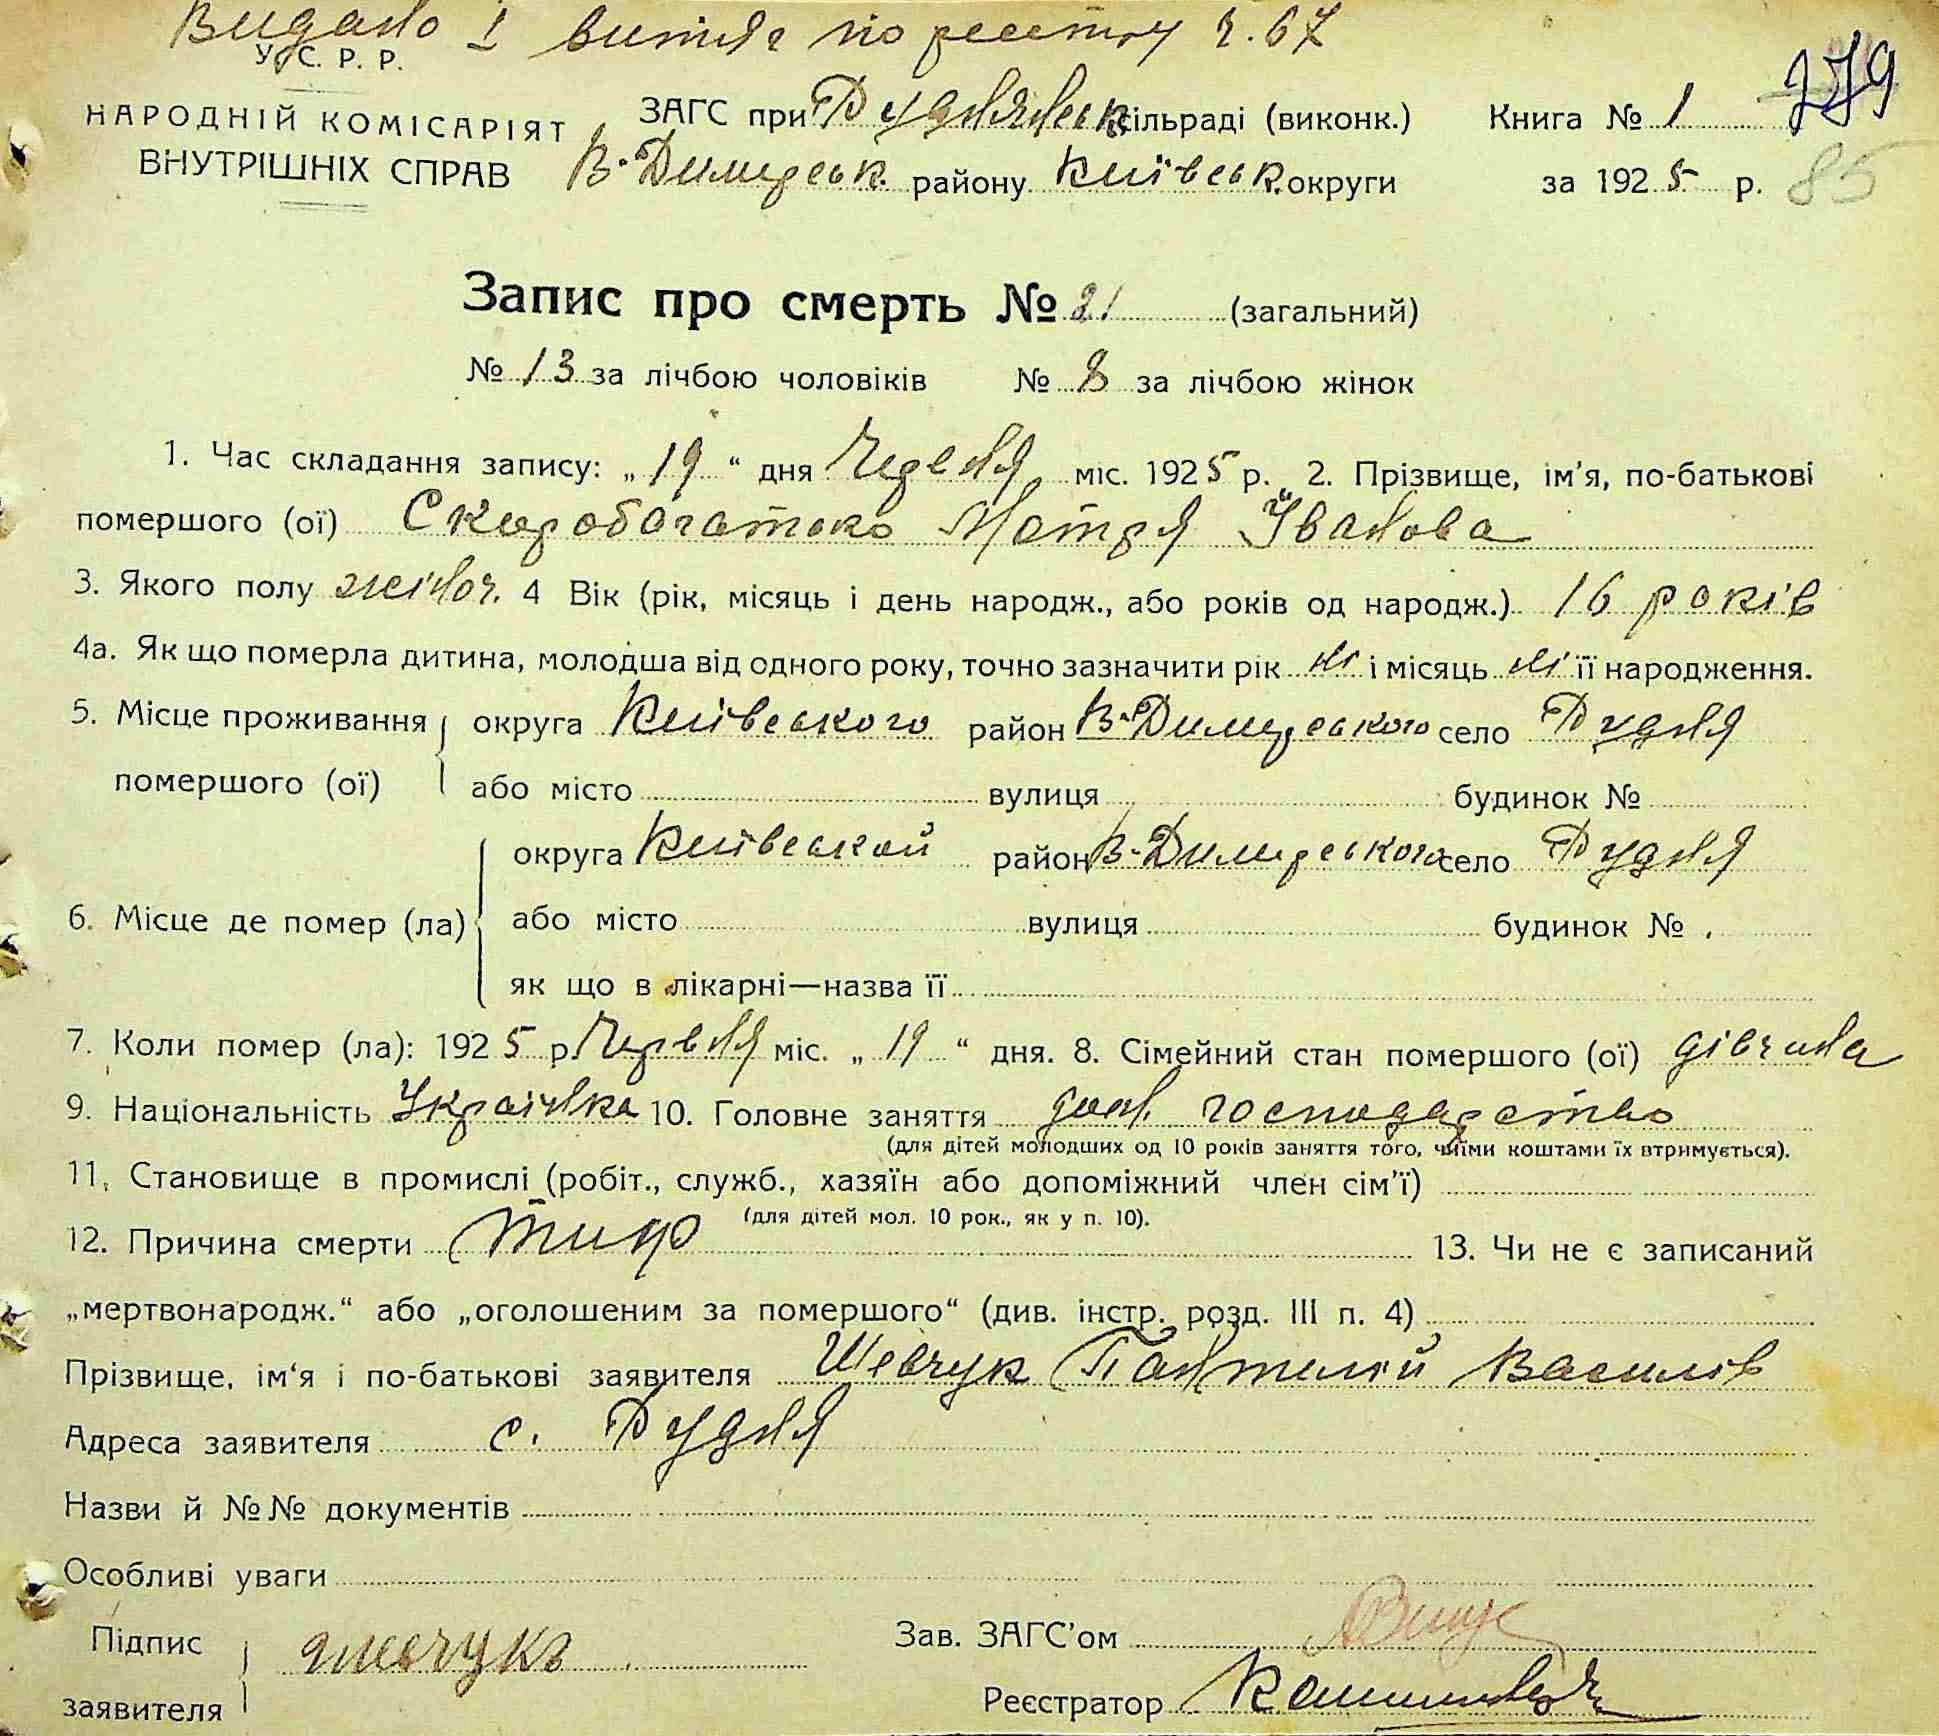 Видано I витяг по реєстру ч. 67
У С. Р. Р.
279
НАРОДНІЙ КОМІСАРІЯТ
ВНУТРІШНІХ СПРАВ
ЗАГС при Руднянськ сільраді (виконк.) Книга № 1
В-Димерськ. району Київськ. округи за 1925 р. 85
Запис про смерть № 21 (загальний)
№ 13 за лічбою чоловіків № 8 за лічбою жінок
1. Час складання запису: „19“ дня Червня міс. 1925 р. 2. Прізвище, ім'я, по-батькові
помершого (ої) Скоробогатько Мотря Іванова
3. Якого полу жіноч. 4 Вік (рік, місяць і день народж., або років од народж.) 16 років
4а. Як що померла дитина, молодша від одного року, точно зазначити рік ні і місяць ні її народження.
5. Місце проживання округа Київського район В-Димерського село Рудня
помершого (ої) або місто вулиця будинок №
округа Київський район В-Димерського село Рудня
6. Місце де помер (ла) або місто вулиця будинок №
як що в лікарні—назва її
7. Коли помер (ла): 1925 р. Червня міс. „19“ дня. 8. Сімейний стан помершого (ої) дівчина
9. Національність Українка 10. Головне заняття дом. господарство
(для дітей молодших од 10 років заняття того, чиїми коштами їх втримується).
11. Становище в промислі (робіт., служб., хазяїн або допоміжний член сім'ї)
(для дітей мол. 10 рок., як у п. 10).
12. Причина смерти тиф 13. Чи не є записаний
„мертвонародж.“ або „оголошеним за помершого“ (див. інстр. розд. III п. 4)
Прізвище, ім'я і по-батькові заявителя Шевчук Пантилій Василів
Адреса заявителя с. Рудня
Назви й №№ документів
Особливі уваги
Підпис
заявителя
Шевчукъ
Зав. ЗАГС'ом
Реєстратор